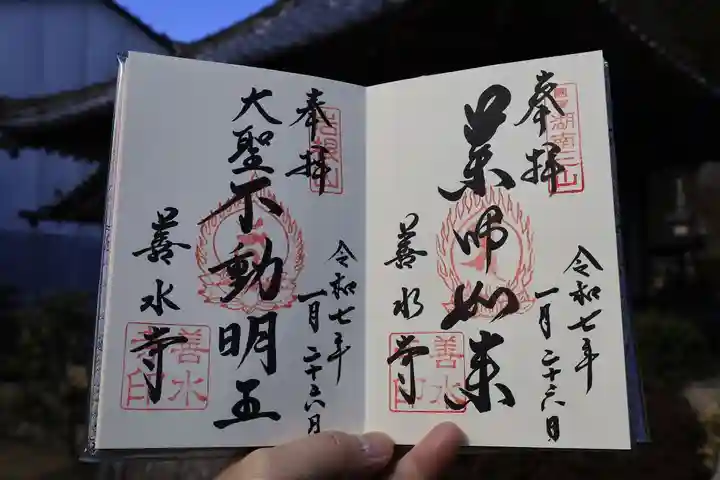 奉拝
國寶
湖南三山
薬師如来
善水寺
善水寺印
令和七年
一月二十六日
奉拝
岩根山
大聖不動明王
善水寺
善水寺印
令和七年
一月二十六日